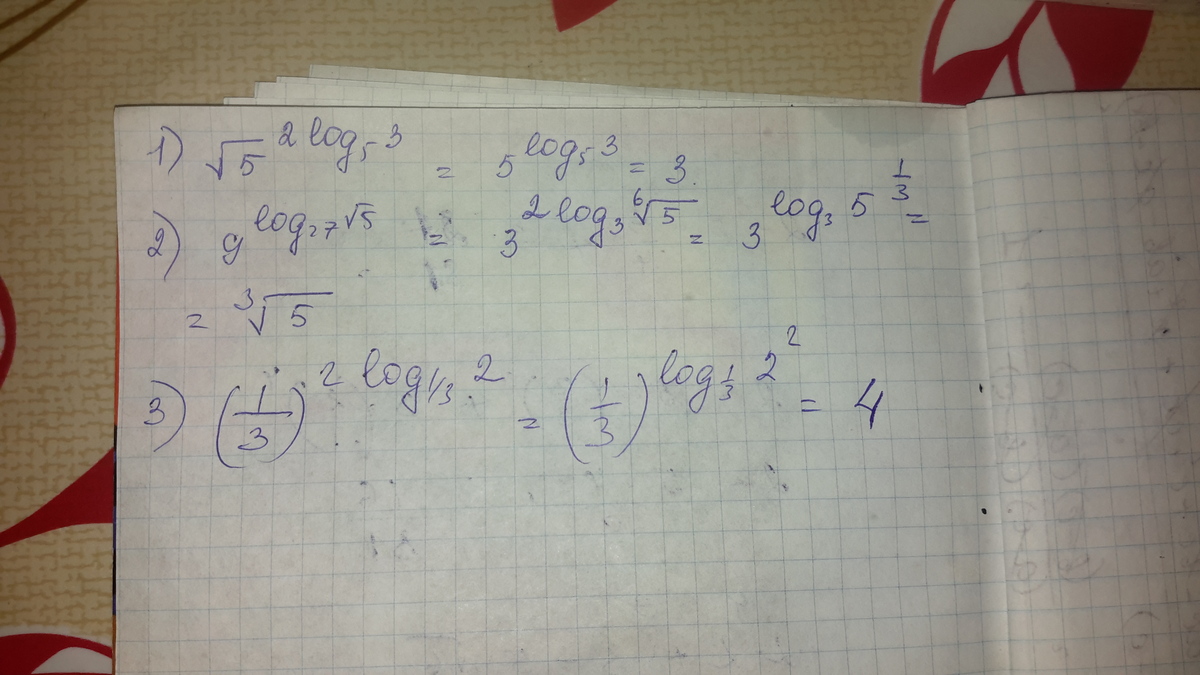 1) √5^(2 log₅ 3) = 5^(log₅ 3) = 3.
2) 9^(log₂₇ √5) = 3^(2 log₃ ⁶√5) = 3^(log₃ 5^(1/3)) =
= ³√5
3) (1/3)^(2 log_(1/3) 2) = (1/3)^(log_(1/3) 2²) = 4